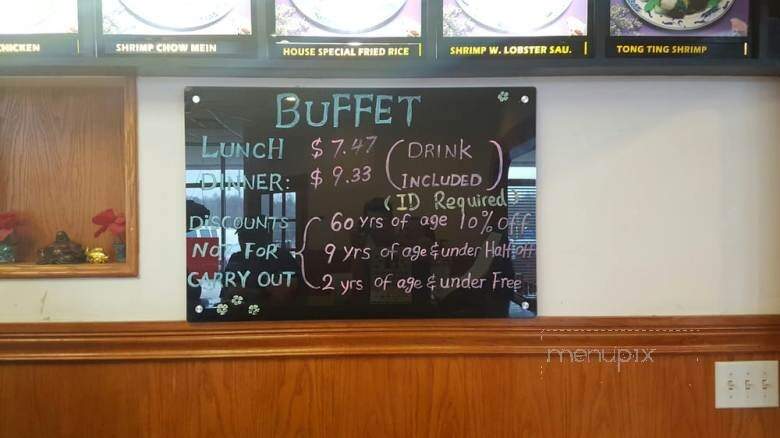 CHICKEN
SHRIMP CHOW MEIN
HOUSE SPECIAL FRIED RICE
SHRIMP W. LOBSTER SAU.
TONG TING SHRIMP
BUFFET
LUNCH $7.47 (DRINK
DINNER: $9.33 INCLUDED)
(ID Required)
DISCOUNTS 60 yrs of age 10% off
NOT FOR 9 yrs of age & under Half off
CARRY OUT 2 yrs of age & under Free
menupix